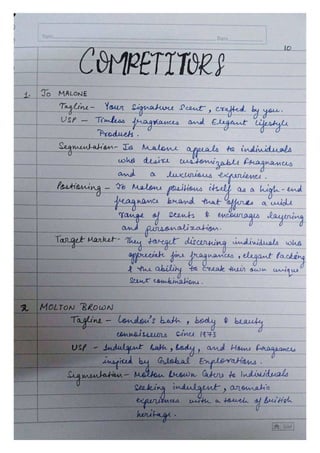 10
COMPETITORS
1. JO MALONE
Tagline - Your Signature Scent, crafted by you.
USP - Timless fragrances and Elegant lifestyle
Products.
Segmentation- Jo Malone appeals to individuals
who desire customizable fragrances
and a luxurious experience.
Positioning - Jo Malone positions itself as a high-end
fragrance brand that offers a wide
range of scents & encourages layering
and personalization.
Target Market- They target discerning individuals who
appreciate fine fragrances, elegant Packing
& the ability to create their own unique
scent combinations.
2. MOLTON BROWN
Tagline - London's bath, body & beauty
connoisseurs since 1973
USP - Indulgent bath, body, and Home fragrances
inspired by Global Explorations.
Segmentation- Molton Brown Caters to Individuals
Seeking indulgent, aromatic
experiences with a touch of British
heritage.